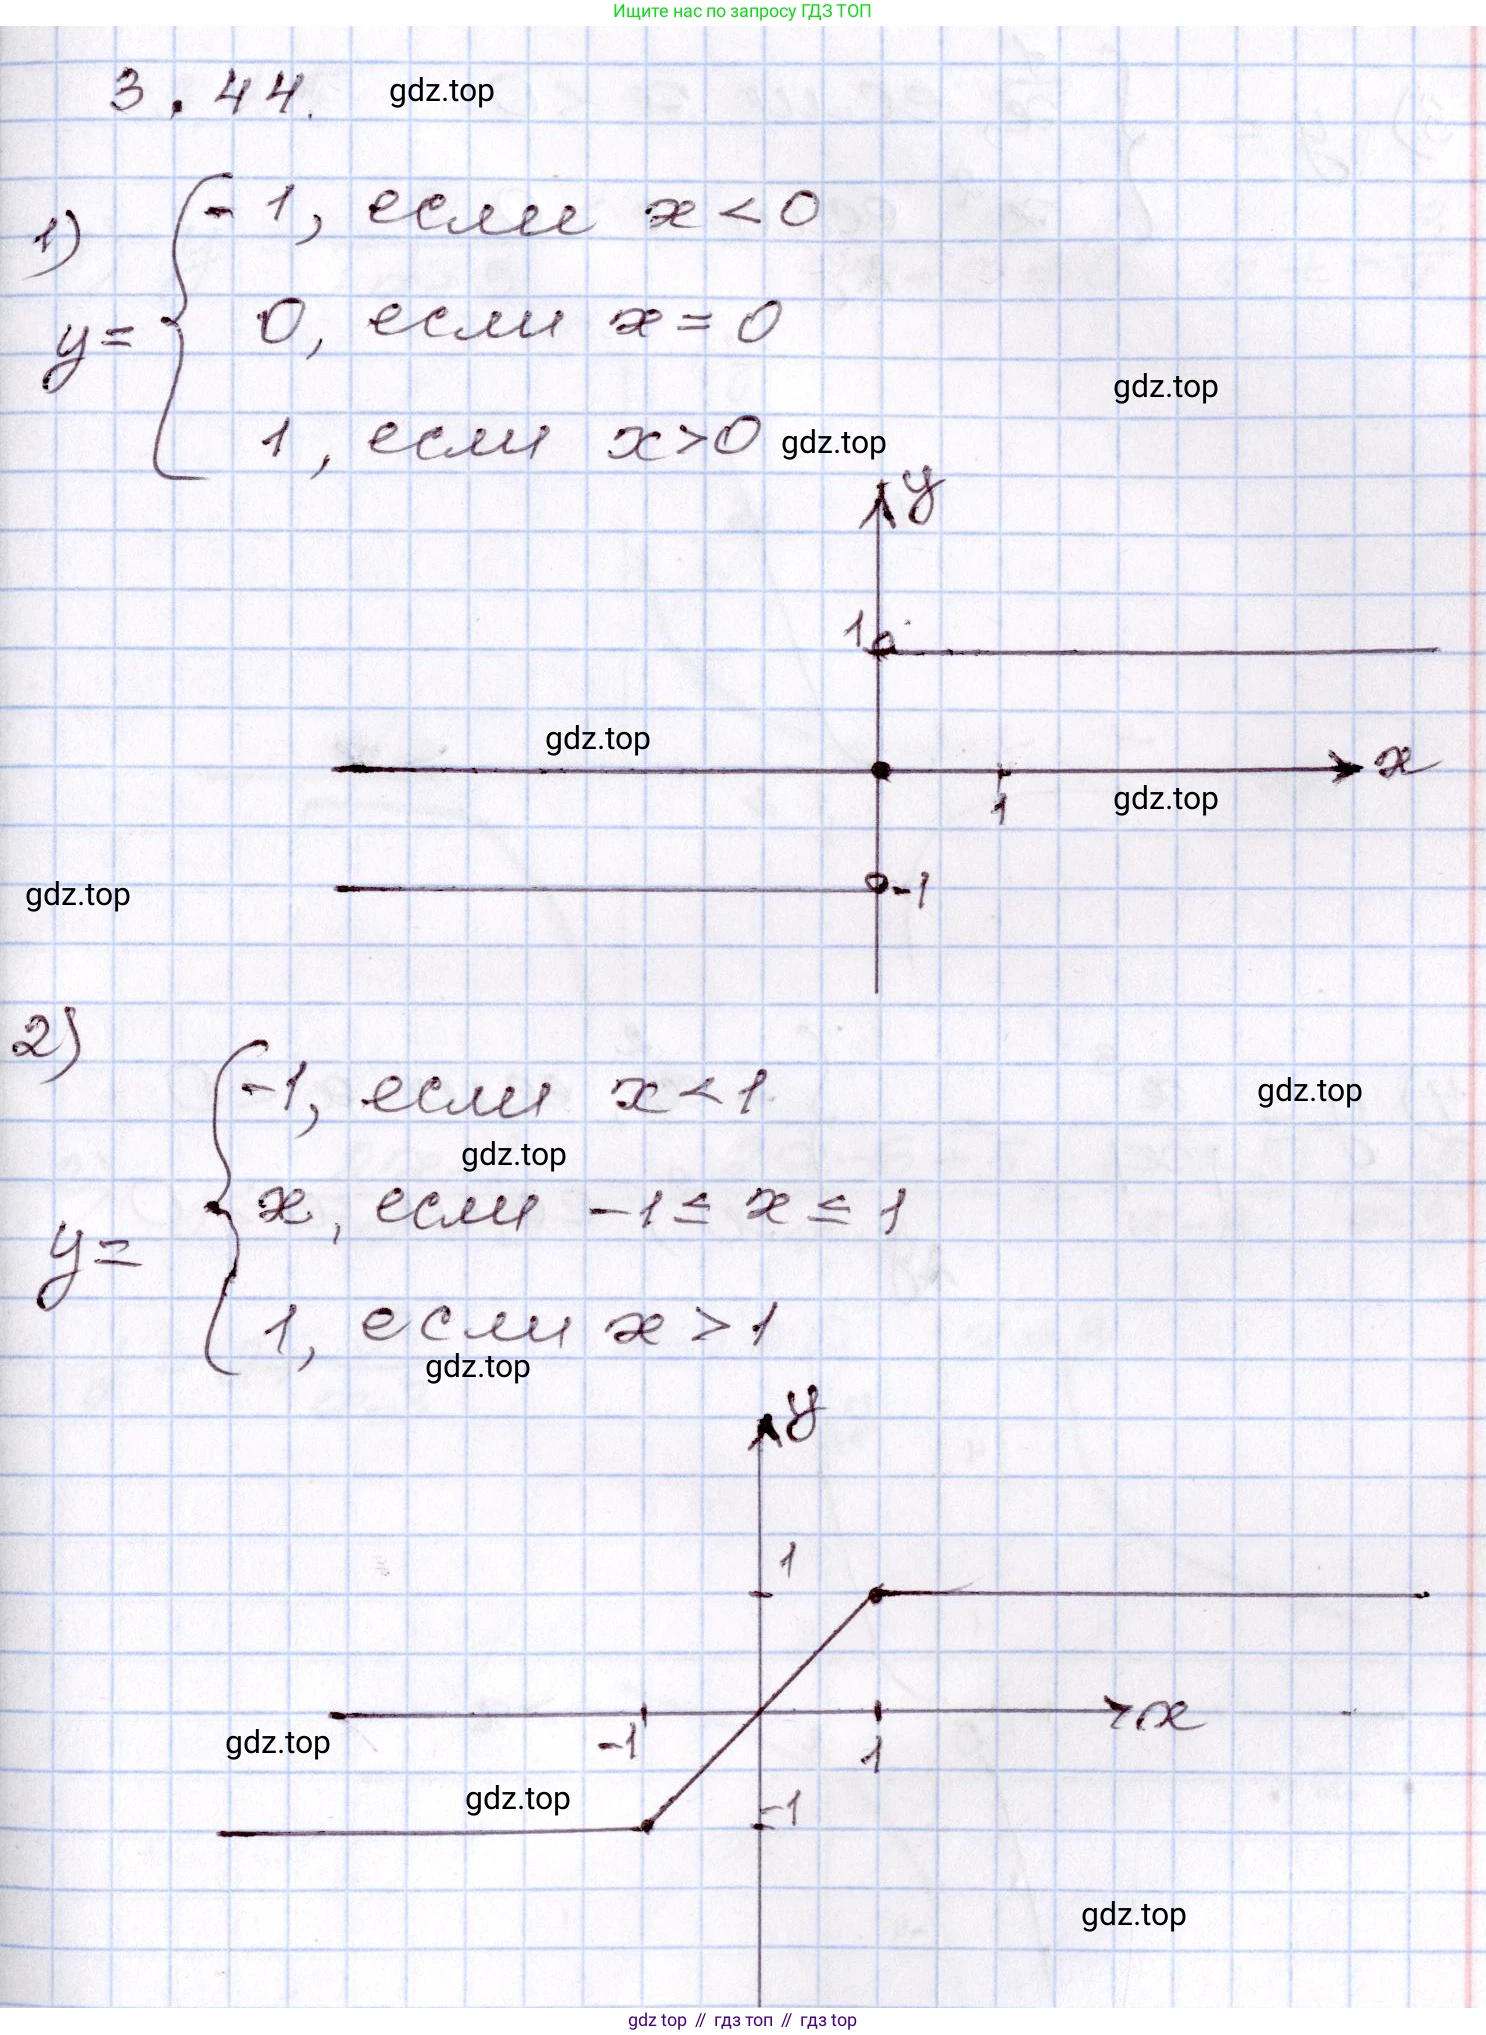 Ищите нас по запросу ГДЗ ТОП
3.44. gdz.top
1) -1, если x<0
y= 0, если x=0
gdz.top
1, если x>0 gdz.top
y
1
gdz.top
x
1
gdz.top
gdz.top
-1
2)
-1, если x<1.
gdz.top
gdz.top
y= x, если -1≤x≤1
1, если x>1
gdz.top
y
1
x
-1
1
gdz.top
gdz.top
-1
gdz.top
gdz top // гдз топ // гдз top